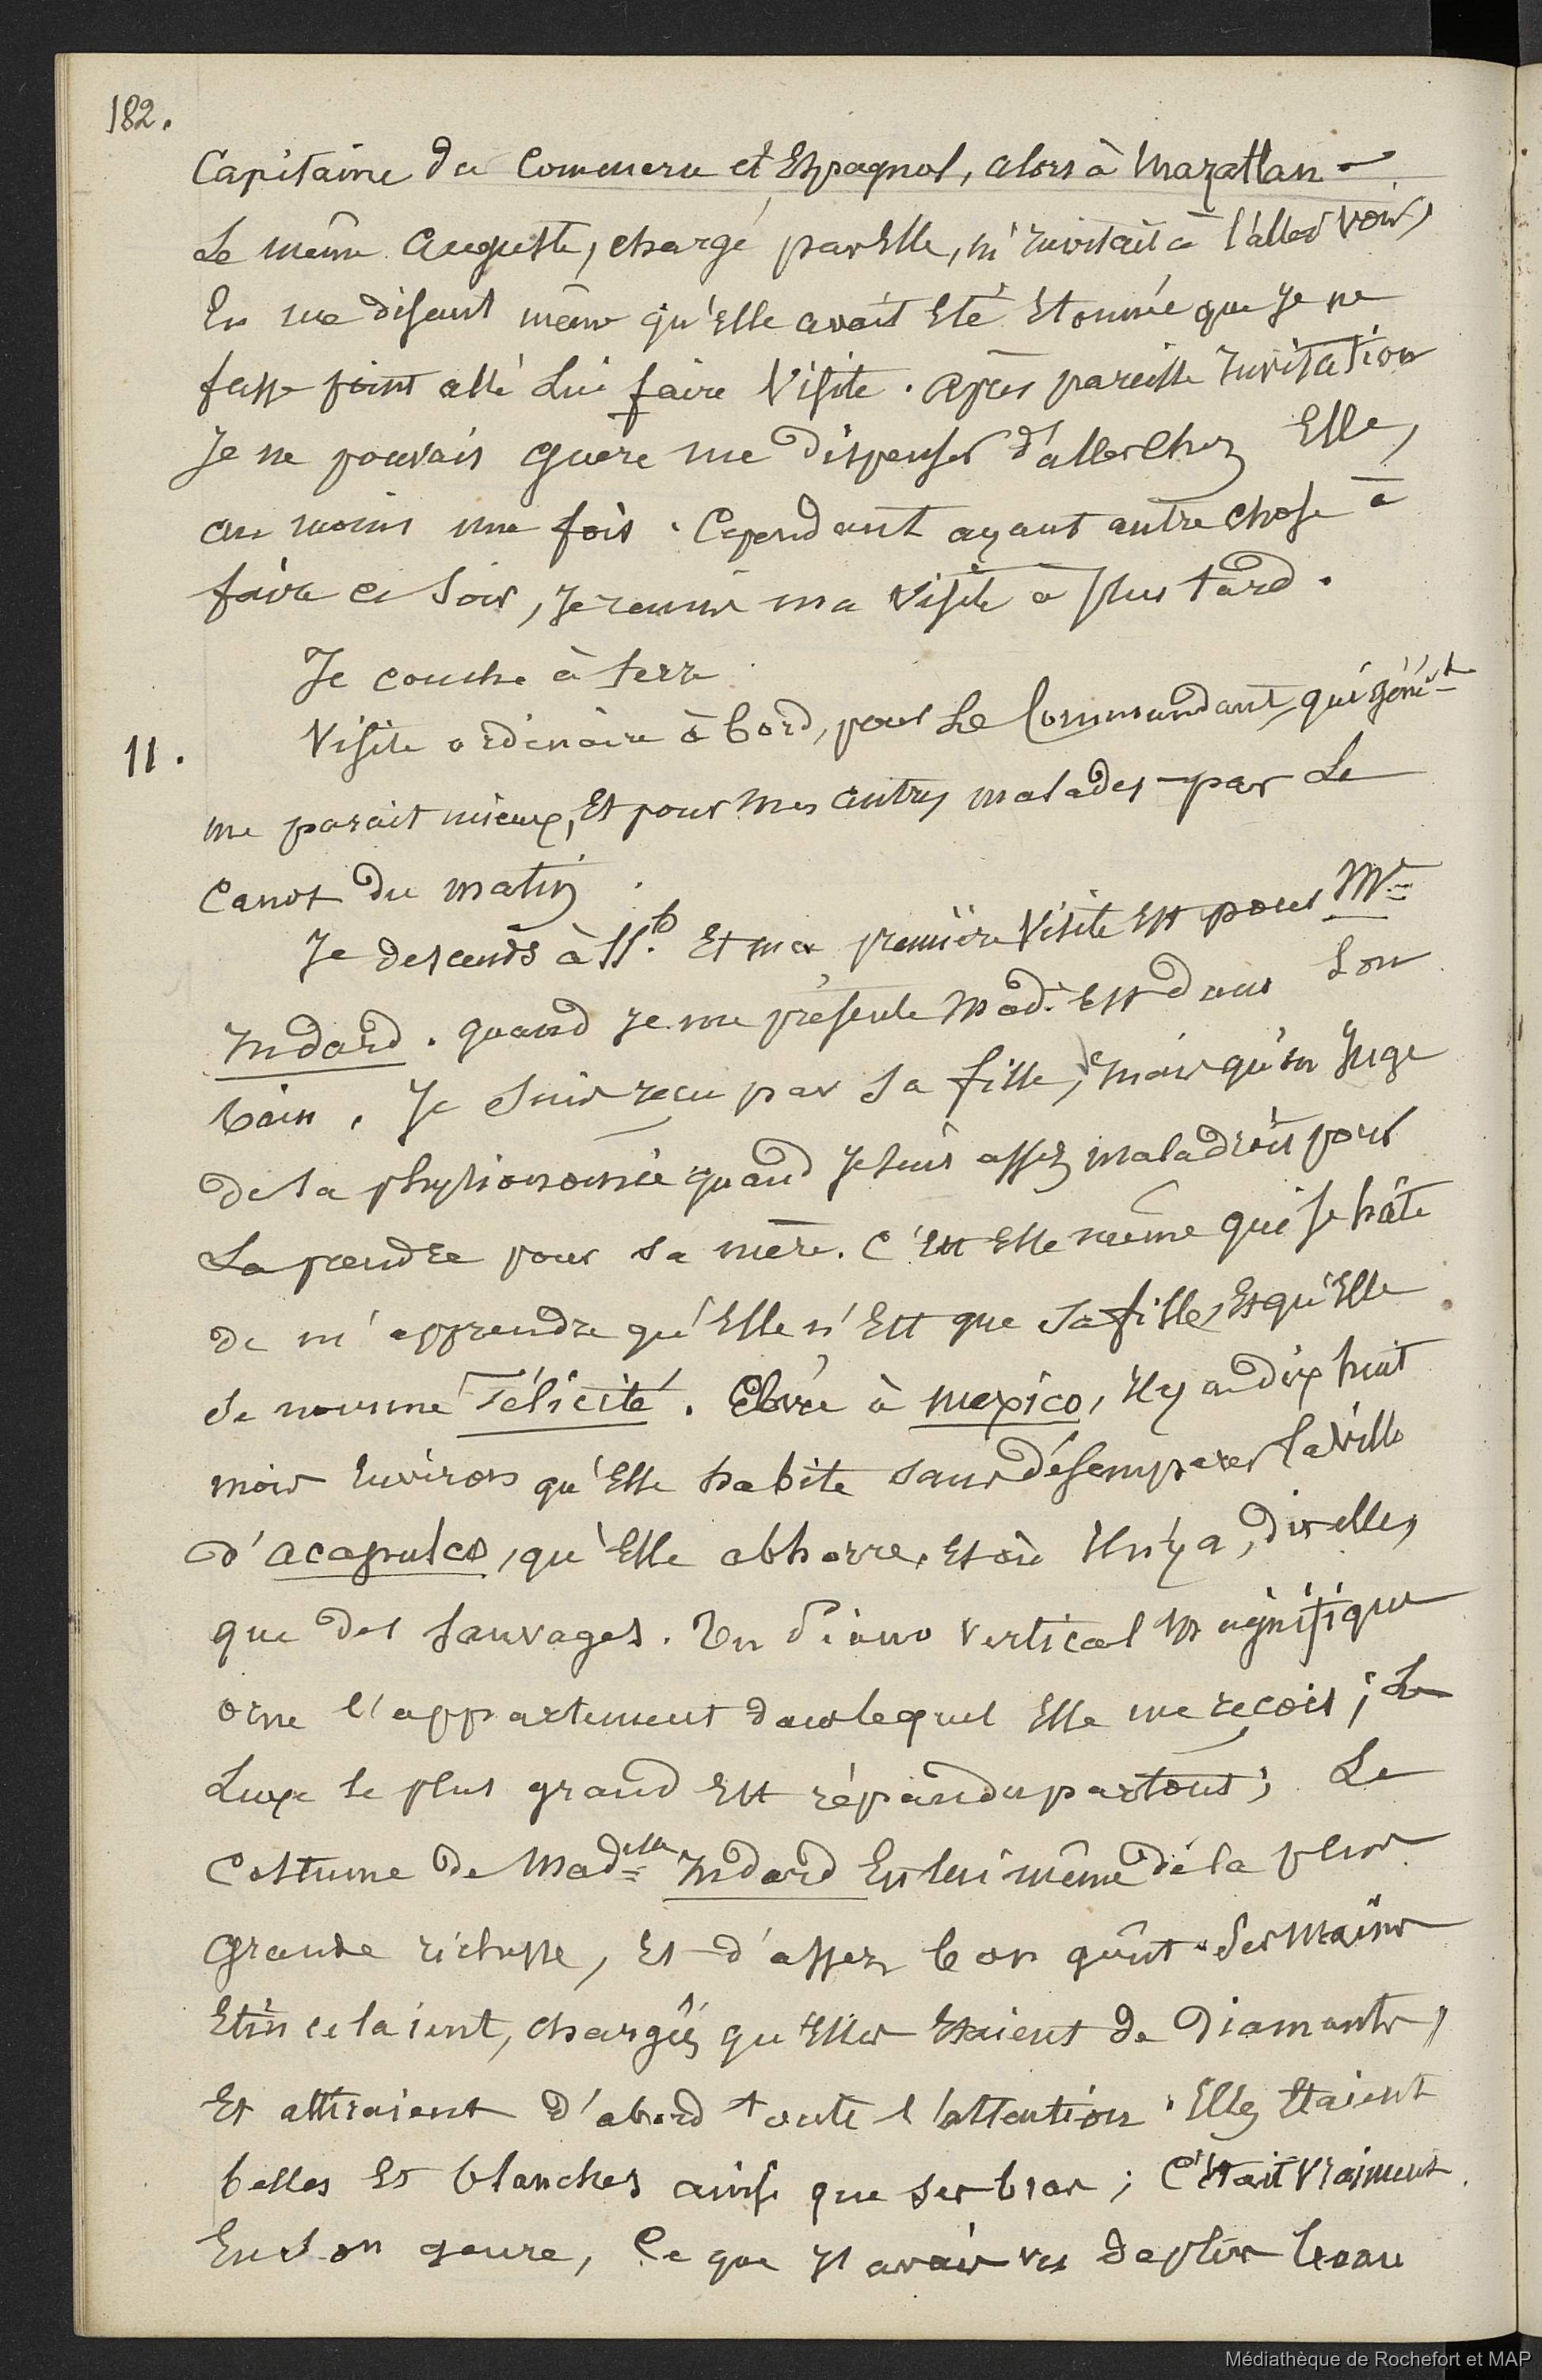 182.
Capitaine du Commerce et Espagnol, alors à Mazatlan —
Le même Auguste, chargé par Elle, m'invitait à l'aller voir,
En me disant même qu'Elle avait Eté Etonnée que Je ne
fusse point allé Lui faire Visite. Après pareille Invitation
Je ne pouvais guère me dispenser d'aller chez Elle,
au moins une fois. Cependant ayant autre chose à
faire ce Soir, Je remis ma Visite à plus tard.
Je couche à terre
11. Visite ordinaire à bord, pour Le Commandant, qui génér.t
me parait mieux, Et pour Mes autres malades par Le
Canot du matin.
Je descends à 11.h Et ma première Visite Est pour Me
Indard. quand Je me présente Mad. Est dans Son
bain. Je Suis reçu par Sa fille, mais qu'on Juge
de Sa physionomie quand Je Suis assez maladroit pour
La prendre pour sa mère. C'Est Elle même qui Se hâte
de m'apprendre qu'Elle n'Est que Sa fille, Et qu'Elle
Se nomme Félicité. Elevée à Mexico, Il y a dix huit
mois Environ qu'Elle habite Sans désemparer la Ville
d'acapulco, qu'Elle abhorre, Et où Il n'y a, dit elle,
que des Sauvages. Un Piano vertical Magnifique
orne l'appartement dans lequel Elle me reçoit; Le
Luxe le plus grand Est répandu partout; Le
Costume de Mad.elle Indard Est lui même de la plus
Grande richesse, Et d'assez bon goût. Ses Mains
Etincelaient, chargées qu'Elles Etaient de Diamants,
Et attiraient d'abord toute l'attention. Elles Etaient
belles Et blanches ainsi que Ses bras; C'Etait vraiment
En Son genre, Ce que J'avais vu de plus beau
Médiathèque de Rochefort et MAP